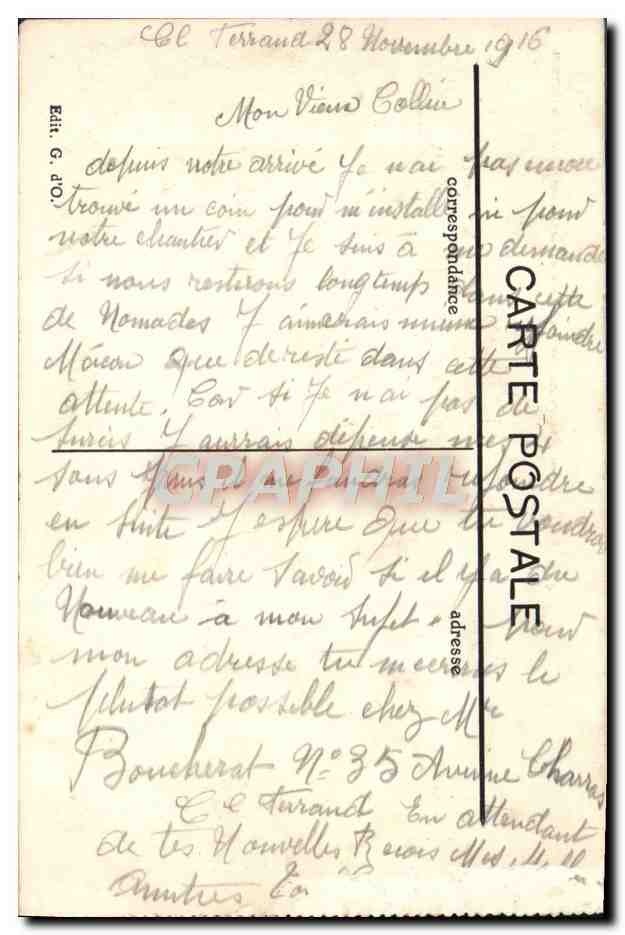 Cl Ferrand 28 Novembre 1916
Mon Vieux Collin
depuis notre arrivé Je n'ai pas encore
trouvé un coin pour m'installé ni pour
notre chantier et Je suis à me demandé
si nous resterons longtemps dans cette
de Nomades J aimerais mieux rejoindre
Mâcon que de resté dans cette
attente. Car si Je n'ai pas de
sursis J aurrais dépensé mes
sous puis il me faudras rejoindre
en suite J espere que tu voudras
bien me faire savoir si il y a du
Nouveau à mon sujet pour
mon adresse tu m'ecriras le
plutot possible chez Mr
Boucherat No 35 Avenue Charras
Cl Ferrand En attendant
de tes Nouvelles Recois Mes
Amitiés
Edit. G. d'O.
correspondance
adresse
CARTE POSTALE
CPAPHIL